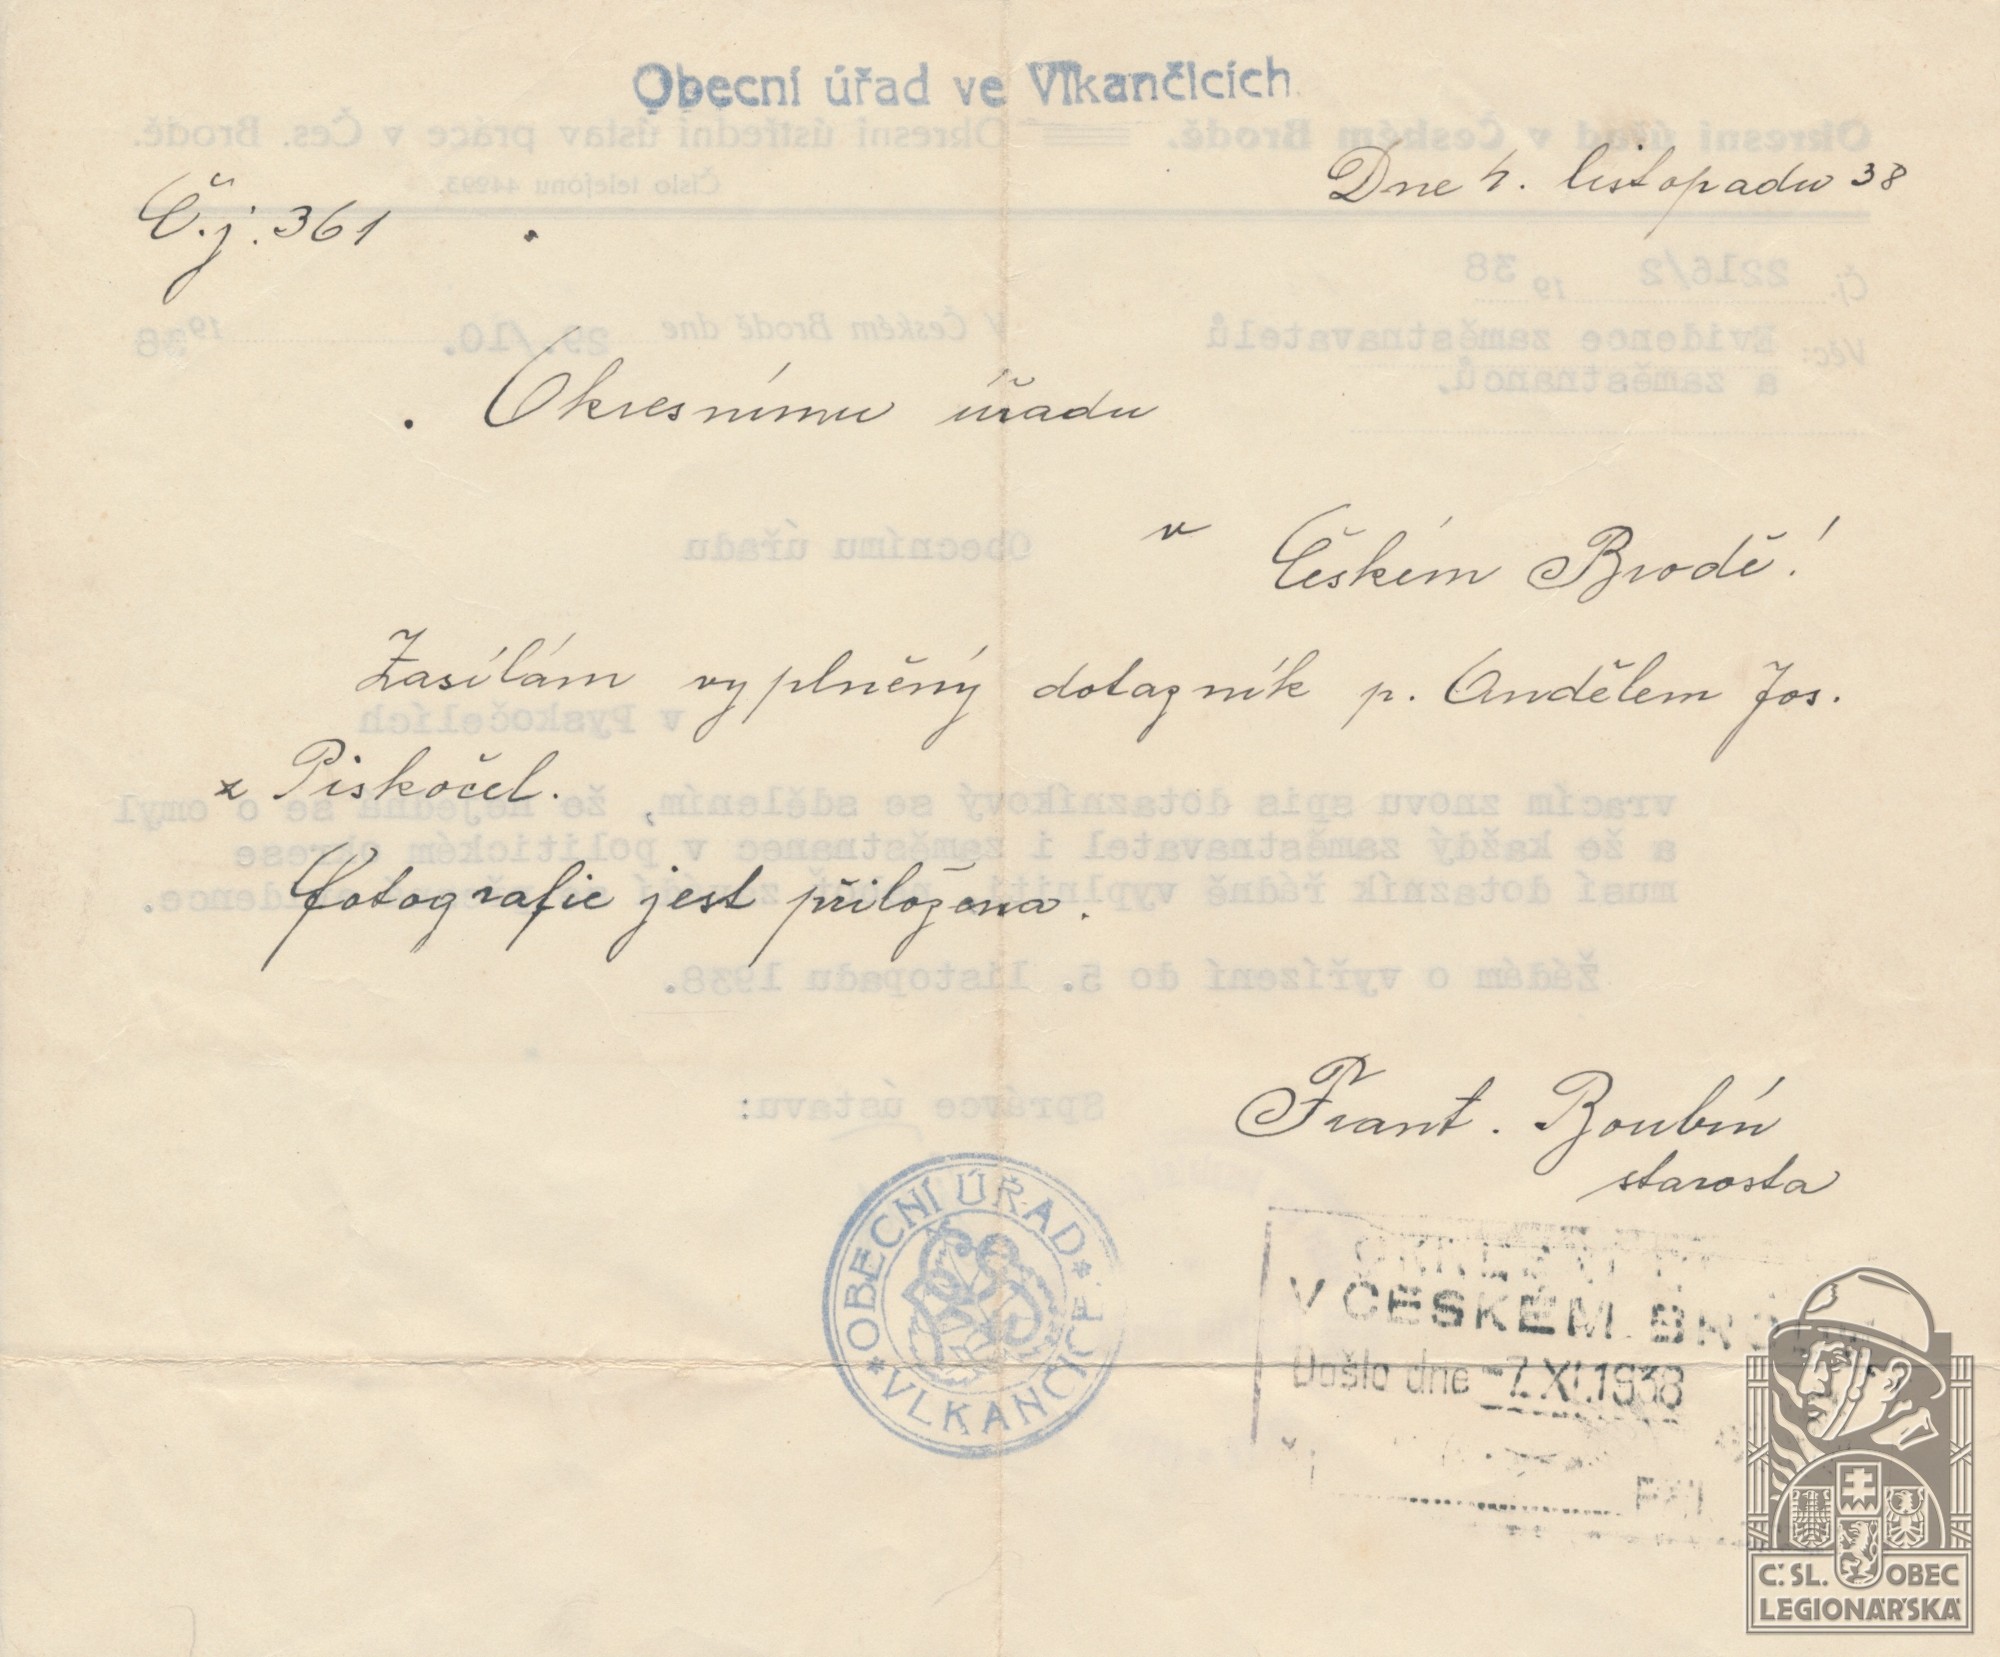 Obecní úřad ve Vlkančicích.
Dne 4. listopadu 38
Č.j. 361
Okresnímu úřadu
v
Českém Brodě!
Zasílám vyplněný dotazník p. Andělem Jos.
z Piskočel.
Fotografie jest přiložena.
Frant. Boubín
starosta
OBECNÍ ÚŘAD
* VLKANČICE *
OKRESNÍ
V ČESKÉM BRODĚ
Došlo dne -7. XI. 1938
Č. SL. OBEC
LEGIONÁŘSKÁ
Okresní úřad v Českém Brodě. Okresní ústřední ústav práce v Čes. Brodě.
Číslo telefonu 44293.
Čj. 2216/2 19 38
Věc: Evidence zaměstnavatelů
a zaměstnanců.
V Českém Brodě dne 29./10. 1938
Obecnímu úřadu
v Pyskočelích
vracím znovu spis dotazníkový se sdělením, že nejedná se o omyl
a že každý zaměstnavatel i zaměstnanec v politickém okrese
musí dotazník řádně vyplniti,
Žádám o vyřízení do 5. listopadu 1938.
Správce ústavu: